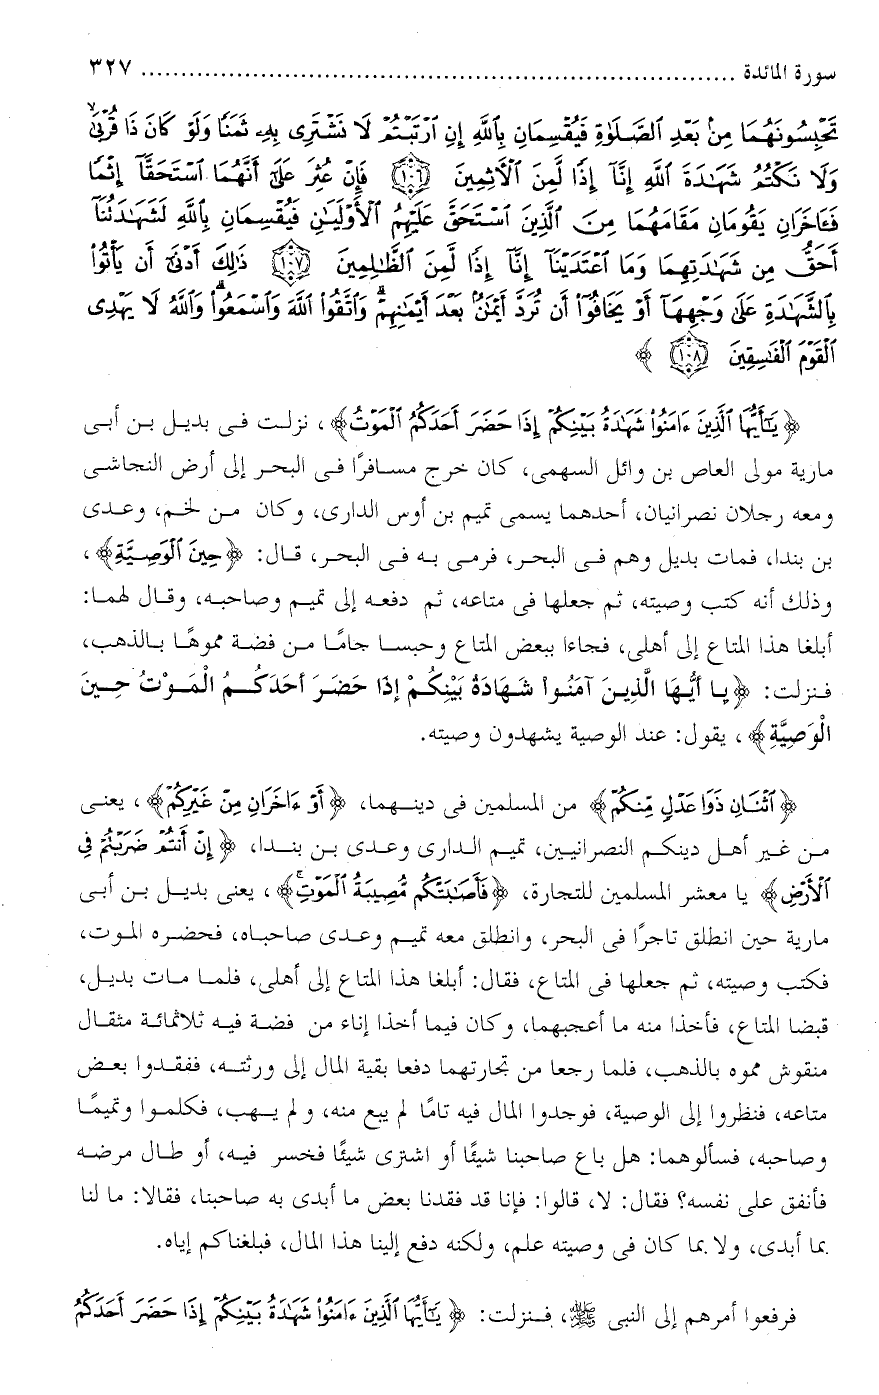 سورة المائدة ........................................................................ ٣٢٧
تَحْبِسُونَهُمَا مِنۢ بَعْدِ ٱلصَّلَوٰةِ فَيُقْسِمَانِ بِٱللَّهِ إِنِ ٱرْتَبْتُمْ لَا نَشْتَرِى بِهِۦ ثَمَنًا وَلَوْ كَانَ ذَا قُرْبَىٰ ۙ
وَلَا نَكْتُمُ شَهَـٰدَةَ ٱللَّهِ إِنَّآ إِذًا لَّمِنَ ٱلْأَثِمِينَ ﴿١٠٦﴾ فَإِنْ عُثِرَ عَلَىٰٓ أَنَّهُمَا ٱسْتَحَقَّآ إِثْمًا
فَـَٔاخَرَانِ يَقُومَانِ مَقَامَهُمَا مِنَ ٱلَّذِينَ ٱسْتَحَقَّ عَلَيْهِمُ ٱلْأَوْلَيَـٰنِ فَيُقْسِمَانِ بِٱللَّهِ لَشَهَـٰدَتُنَآ
أَحَقُّ مِن شَهَـٰدَتِهِمَا وَمَا ٱعْتَدَيْنَآ إِنَّآ إِذًا لَّمِنَ ٱلظَّـٰلِمِينَ ﴿١٠٧﴾ ذَٰلِكَ أَدْنَىٰٓ أَن يَأْتُوا۟
بِٱلشَّهَـٰدَةِ عَلَىٰ وَجْهِهَآ أَوْ يَخَافُوٓا۟ أَن تُرَدَّ أَيْمَـٰنٌۢ بَعْدَ أَيْمَـٰنِهِمْ ۗ وَٱتَّقُوا۟ ٱللَّهَ وَٱسْمَعُوا۟ ۗ وَٱللَّهُ لَا يَهْدِى
ٱلْقَوْمَ ٱلْفَـٰسِقِينَ ﴿١٠٨﴾ ﴾
﴿ يَـٰٓأَيُّهَا ٱلَّذِينَ ءَامَنُوا۟ شَهَـٰدَةُ بَيْنِكُمْ إِذَا حَضَرَ أَحَدَكُمُ ٱلْمَوْتُ ﴾، نزلت فى بديل بن أبى
مارية مولى العاص بن وائل السهمى، كان خرج مسافرًا فى البحر إلى أرض النجاشى
ومعه رجلان نصرانيان، أحدهما يسمى تميم بن أوس الدارى، وكان من لخم، وعدى
بن بندا، فمات بديل وهم فى البحر، فرمى به فى البحر، قال: ﴿ حِينَ ٱلْوَصِيَّةِ ﴾،
وذلك أنه كتب وصيته، ثم جعلها فى متاعه، ثم دفعه إلى تميم وصاحبه، وقال لهما:
أبلغا هذا المتاع إلى أهلى، فجاءا ببعض المتاع وحبسا جامًا من فضة مموهًا بالذهب،
فنزلت: ﴿ يَا أَيُّهَا الَّذِينَ آمَنُواْ شَهَادَةُ بَيْنِكُمْ إِذَا حَضَرَ أَحَدَكُمُ الْمَوْتُ حِينَ
الْوَصِيَّةِ ﴾، يقول: عند الوصية يشهدون وصيته.
﴿ ٱثْنَانِ ذَوَا عَدْلٍ مِّنكُمْ ﴾ من المسلمين فى دينهما، ﴿ أَوْ ءَاخَرَانِ مِنْ غَيْرِكُمْ ﴾، يعنى
من غير أهل دينكم النصرانيين، تميم الدارى وعدى بن بندا، ﴿ إِنْ أَنتُمْ ضَرَبْتُمْ فِى
ٱلْأَرْضِ ﴾ يا معشر المسلمين للتجارة، ﴿ فَأَصَـٰبَتْكُم مُّصِيبَةُ ٱلْمَوْتِ ۚ ﴾، يعنى بديل بن أبى
مارية حين انطلق تاجرًا فى البحر، وانطلق معه تميم وعدى صاحباه، فحضره الموت،
فكتب وصيته، ثم جعلها فى المتاع، فقال: أبلغا هذا المتاع إلى أهلى، فلما مات بديل،
قبضا المتاع، فأخذا منه ما أعجبهما، وكان فيما أخذا إناء من فضة فيه ثلاثمائة مثقال
منقوش مموه بالذهب، فلما رجعا من تجارتهما دفعا بقية المال إلى ورثته، ففقدوا بعض
متاعه، فنظروا إلى الوصية، فوجدوا المال فيه تامًا لم يبع منه، ولم يهب، فكلموا وتميمًا
وصاحبه، فسألوهما: هل باع صاحبنا شيئًا أو اشترى شيئًا فخسر فيه، أو طال مرضه
فأنفق على نفسه؟ فقال: لا، قالوا: فإنا قد فقدنا بعض ما أبدى به صاحبنا، فقالا: ما لنا
بما أبدى، ولا بما كان فى وصيته علم، ولكنه دفع إلينا هذا المال، فبلغناكم إياه.
فرفعوا أمرهم إلى النبى ﷺ، فنزلت: ﴿ يَـٰٓأَيُّهَا ٱلَّذِينَ ءَامَنُوا۟ شَهَـٰدَةُ بَيْنِكُمْ إِذَا حَضَرَ أَحَدَكُمُ